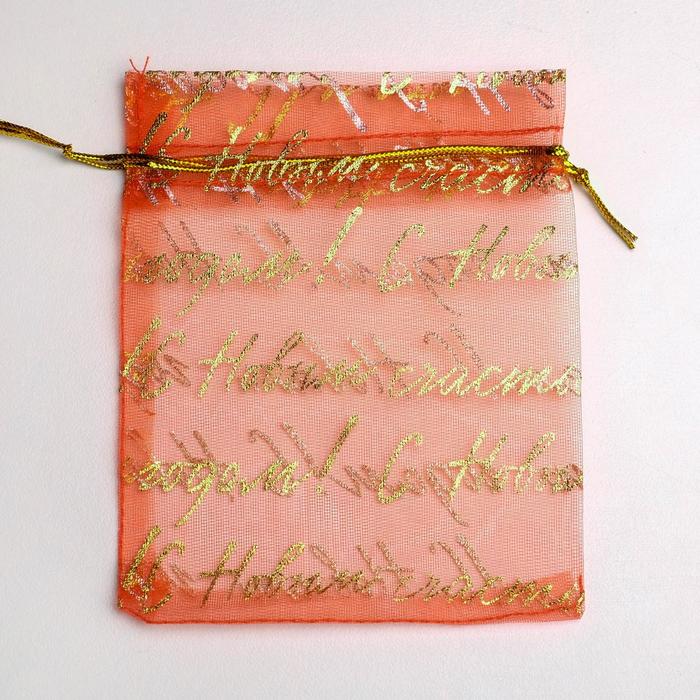 С Новым счастьем
годом! С Новым
С Новым счастьем
годом! С Новым
С Новым счастьем